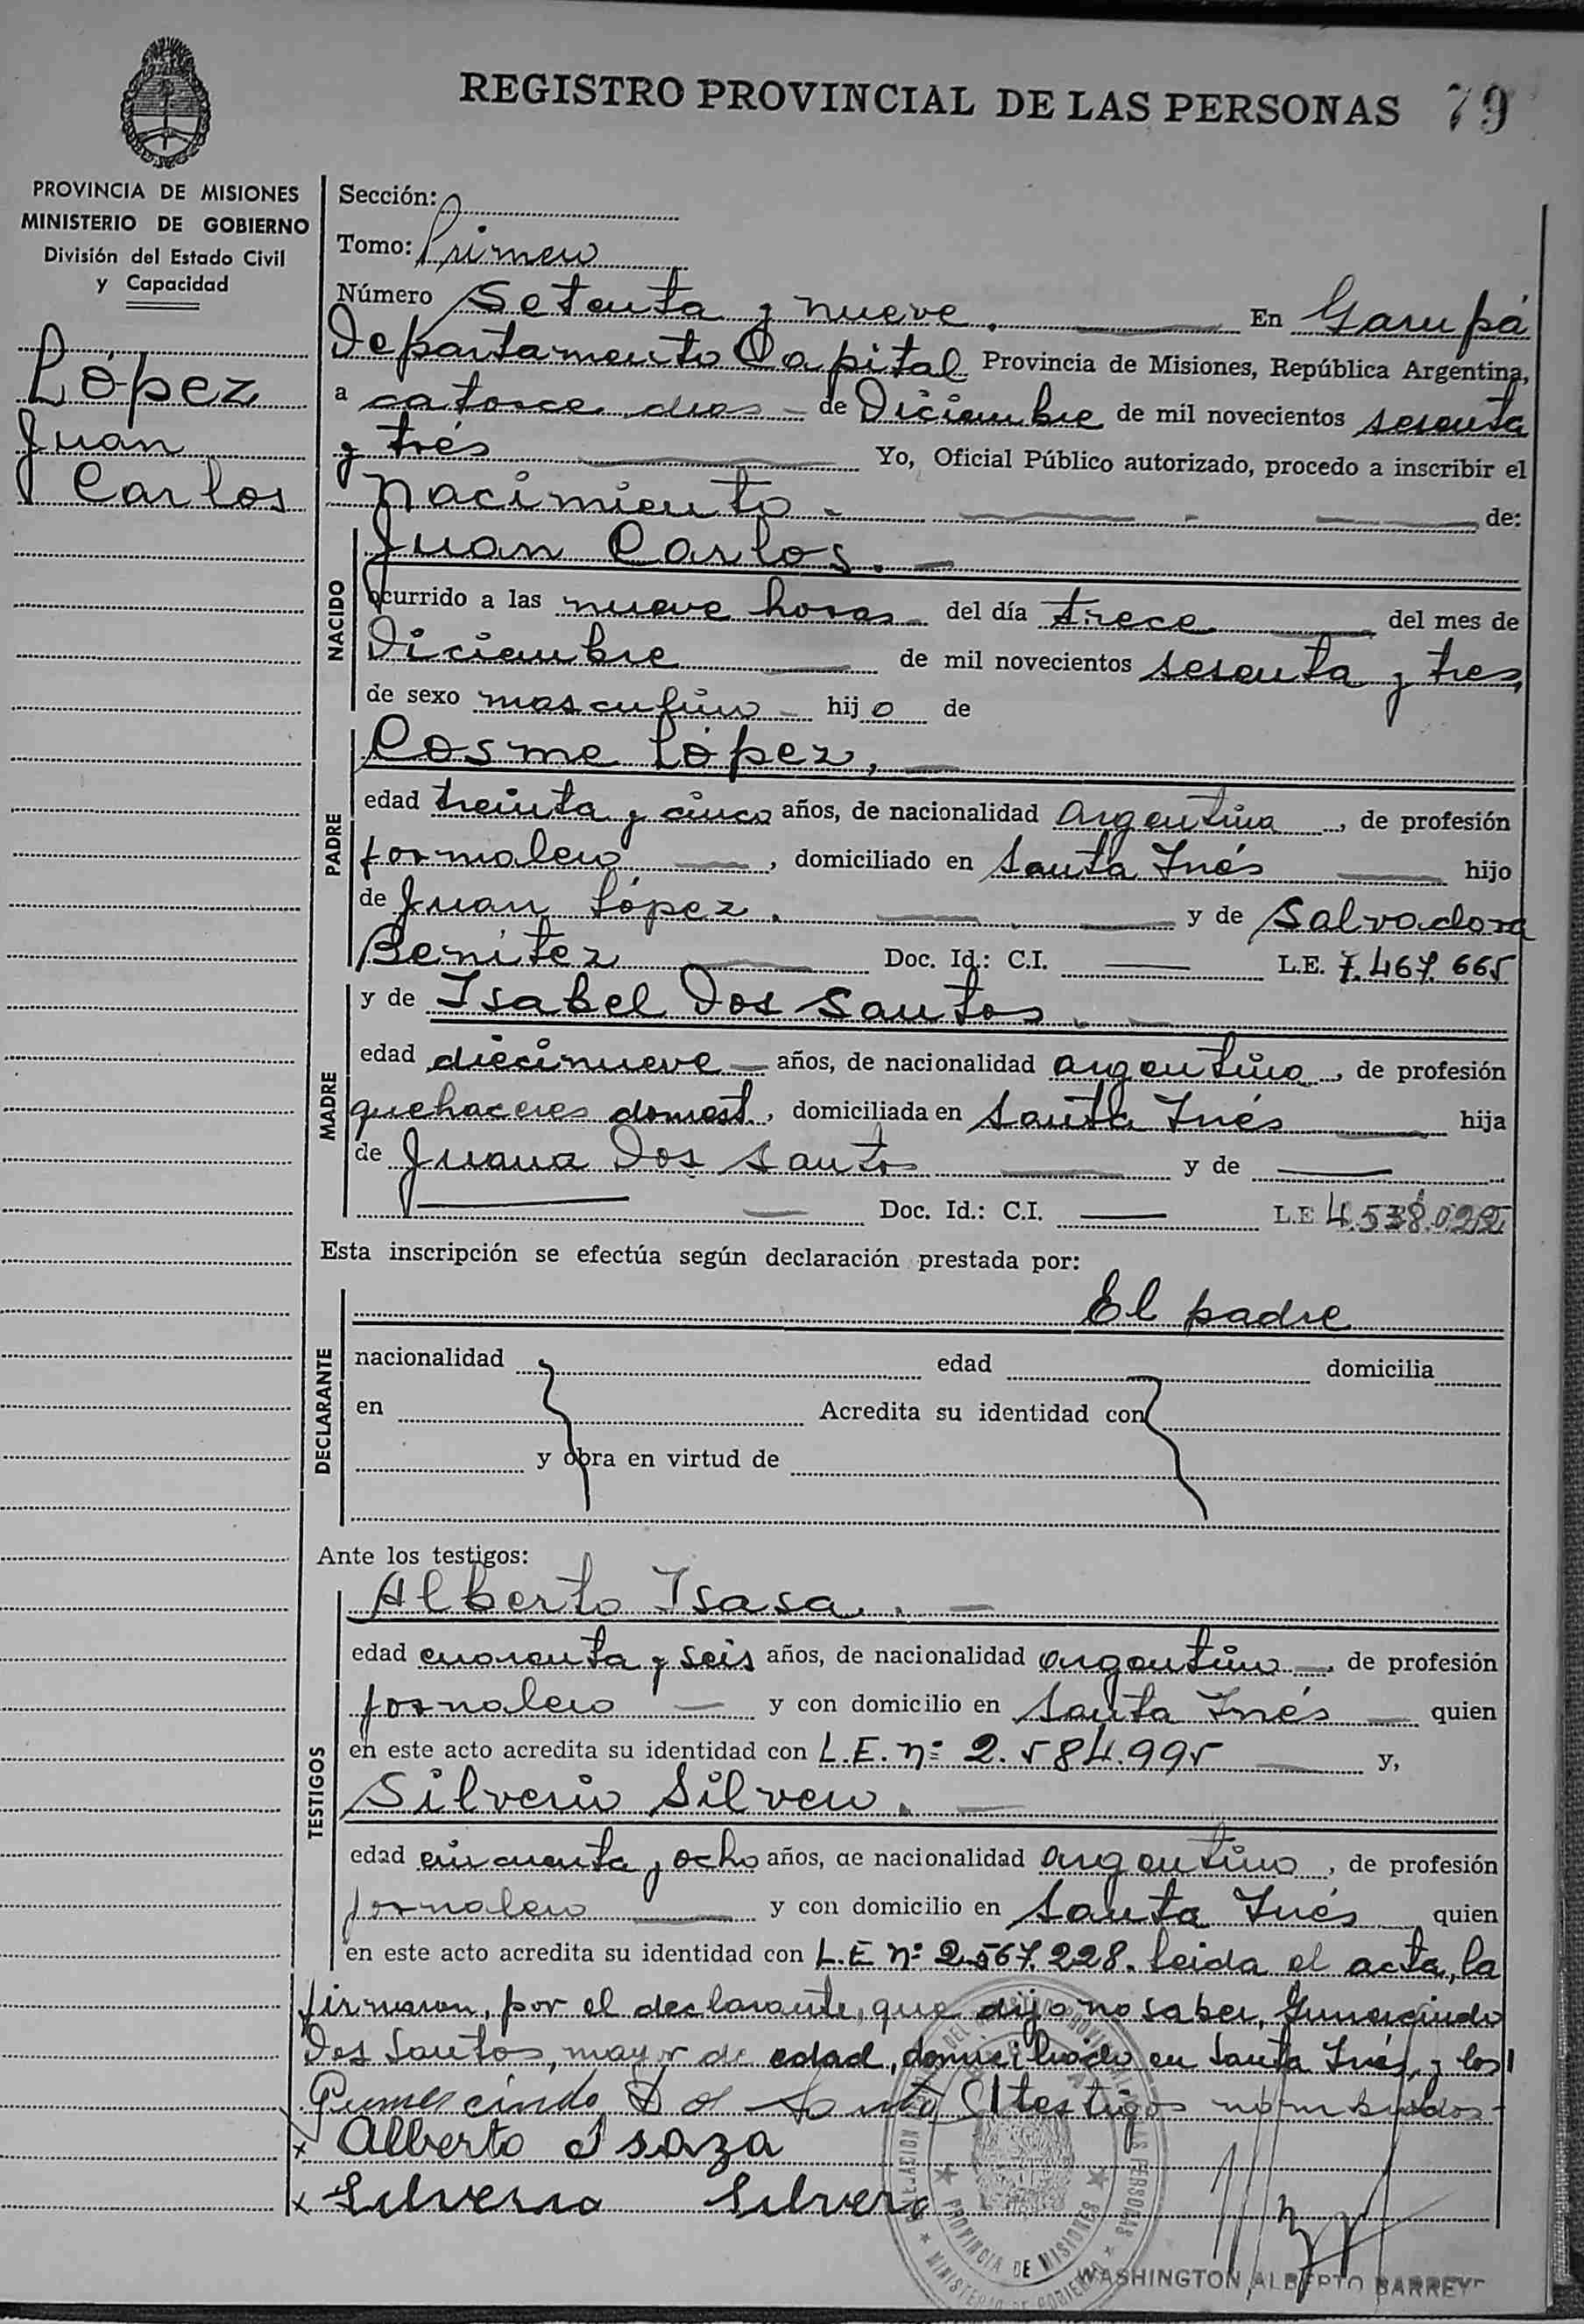 REGISTRO PROVINCIAL DE LAS PERSONAS 79
PROVINCIA DE MISIONES
MINISTERIO DE GOBIERNO
División del Estado Civil
y Capacidad
López
Juan
Carlos
Sección:
Tomo: Primero
Número Setenta y nueve. En Garupá
Departamento Capital Provincia de Misiones, República Argentina,
a catorce dias de Diciembre de mil novecientos sesenta
y trés Yo, Oficial Público autorizado, procedo a inscribir el
nacimiento de:
NACIDO
Juan Carlos.
ocurrido a las nueve horas del día trece del mes de
Diciembre de mil novecientos sesenta y tres,
de sexo masculino hijo de
PADRE
Cosme López,
edad treinta y cinco años, de nacionalidad argentina, de profesión
jornalero, domiciliado en Santa Inés hijo
de Juan López. y de Salvadora
Benítez Doc. Id.: C.I. L.E. 7.467.665
MADRE
y de Isabel Dos Santos.
edad diecinueve años, de nacionalidad argentina, de profesión
quehaceres domest., domiciliada en Santa Inés hija
de Juana Dos Santos y de
Doc. Id.: C.I. L.E 4.538.022
Esta inscripción se efectúa según declaración prestada por:
DECLARANTE
El padre
nacionalidad edad domicilia
en Acredita su identidad con
y obra en virtud de
Ante los testigos:
TESTIGOS
Alberto Isasa.
edad cuarenta y seis años, de nacionalidad argentino, de profesión
jornalero y con domicilio en Santa Inés quien
en este acto acredita su identidad con L.E. nº 2.584.995 y,
Silverio Silvero.
edad cincuenta y ocho años, de nacionalidad argentino, de profesión
jornalero y con domicilio en Santa Inés quien
en este acto acredita su identidad con L.E nº 2.567.228. Leida el acta, la
firmaron, por el declarante, que dijo no saber, Gumercindo
Dos Santos, mayor de edad, domiciliado en Santa Inés, y los
Gumercindo Dos Santo testigos nombrados
x Alberto Isaza
x Silverio Silvero
PROVINCIA DE MISIONES
WASHINGTON ALBERTO BARREY